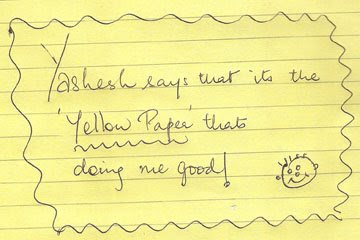 Yashesh says that its the
'Yellow Paper' thats
doing me good!